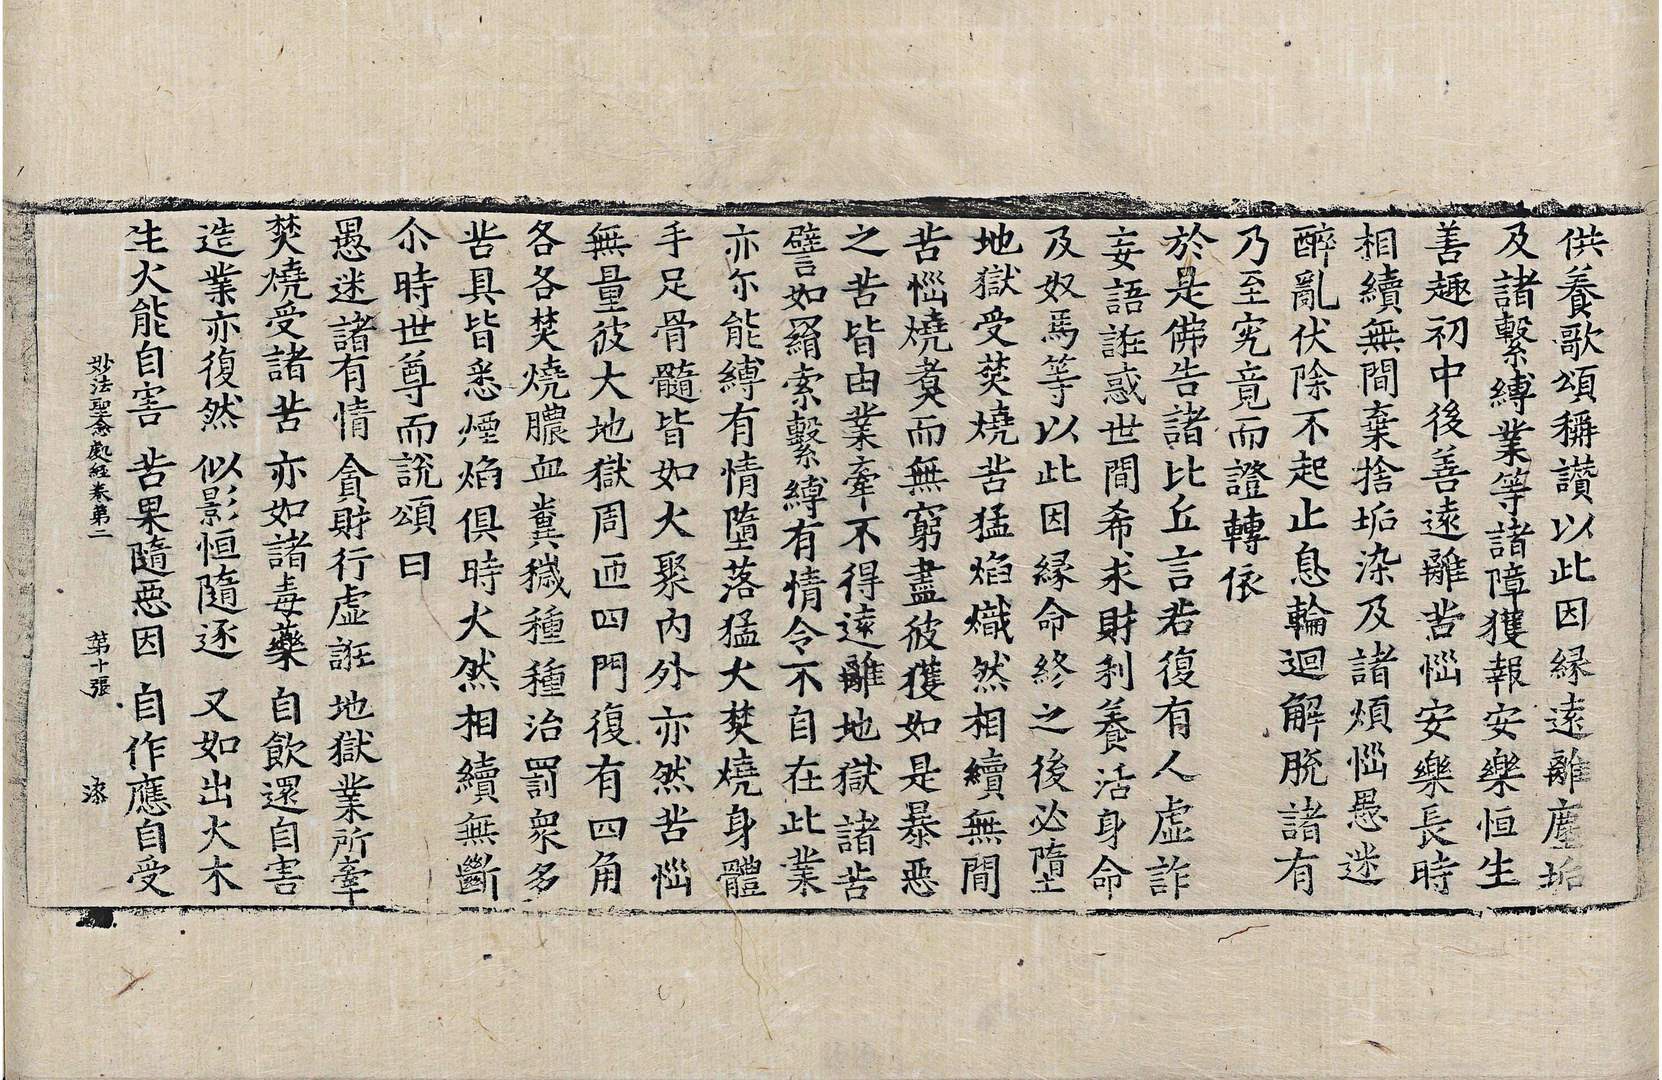 供養歌頌稱讃以此因縁遠離塵垢
及諸繫縛業等諸障獲報安樂恒生
善趣初中後善遠離苦惱安樂長時
相續無間棄捨垢染及諸煩惱愚迷
醉亂伏除不起止息輪迴解脫諸有
乃至究竟而證轉依
於是佛告諸比丘言若復有人虛詐
妄語誑惑世間希求財利養活身命
及奴馬等以此因縁命終之後必墮
地獄受焚燒苦猛焰熾然相續無間
苦惱燒煑而無窮盡彼獲如是暴惡
之苦皆由業牽不得遠離地獄諸苦
譬如羂索繫縛有情令不自在此業
亦尓能縛有情墮落猛火焚燒身體
手足骨髓皆如火聚內外亦然苦惱
無量彼大地獄周匝四門復有四角
各各焚燒膿血糞穢種種治罰衆多
苦具皆悉煙焰俱時火然相續無斷
尒時世尊而說頌曰
愚迷諸有情 貪財行虛誑 地獄業所牽
焚燒受諸苦 亦如諸毒藥 自飲還自害
造業亦復然 似影恒隨逐 又如出火木
生火能自害 苦果隨惡因 自作應自受
妙法聖念處經卷第二 第十張 漆